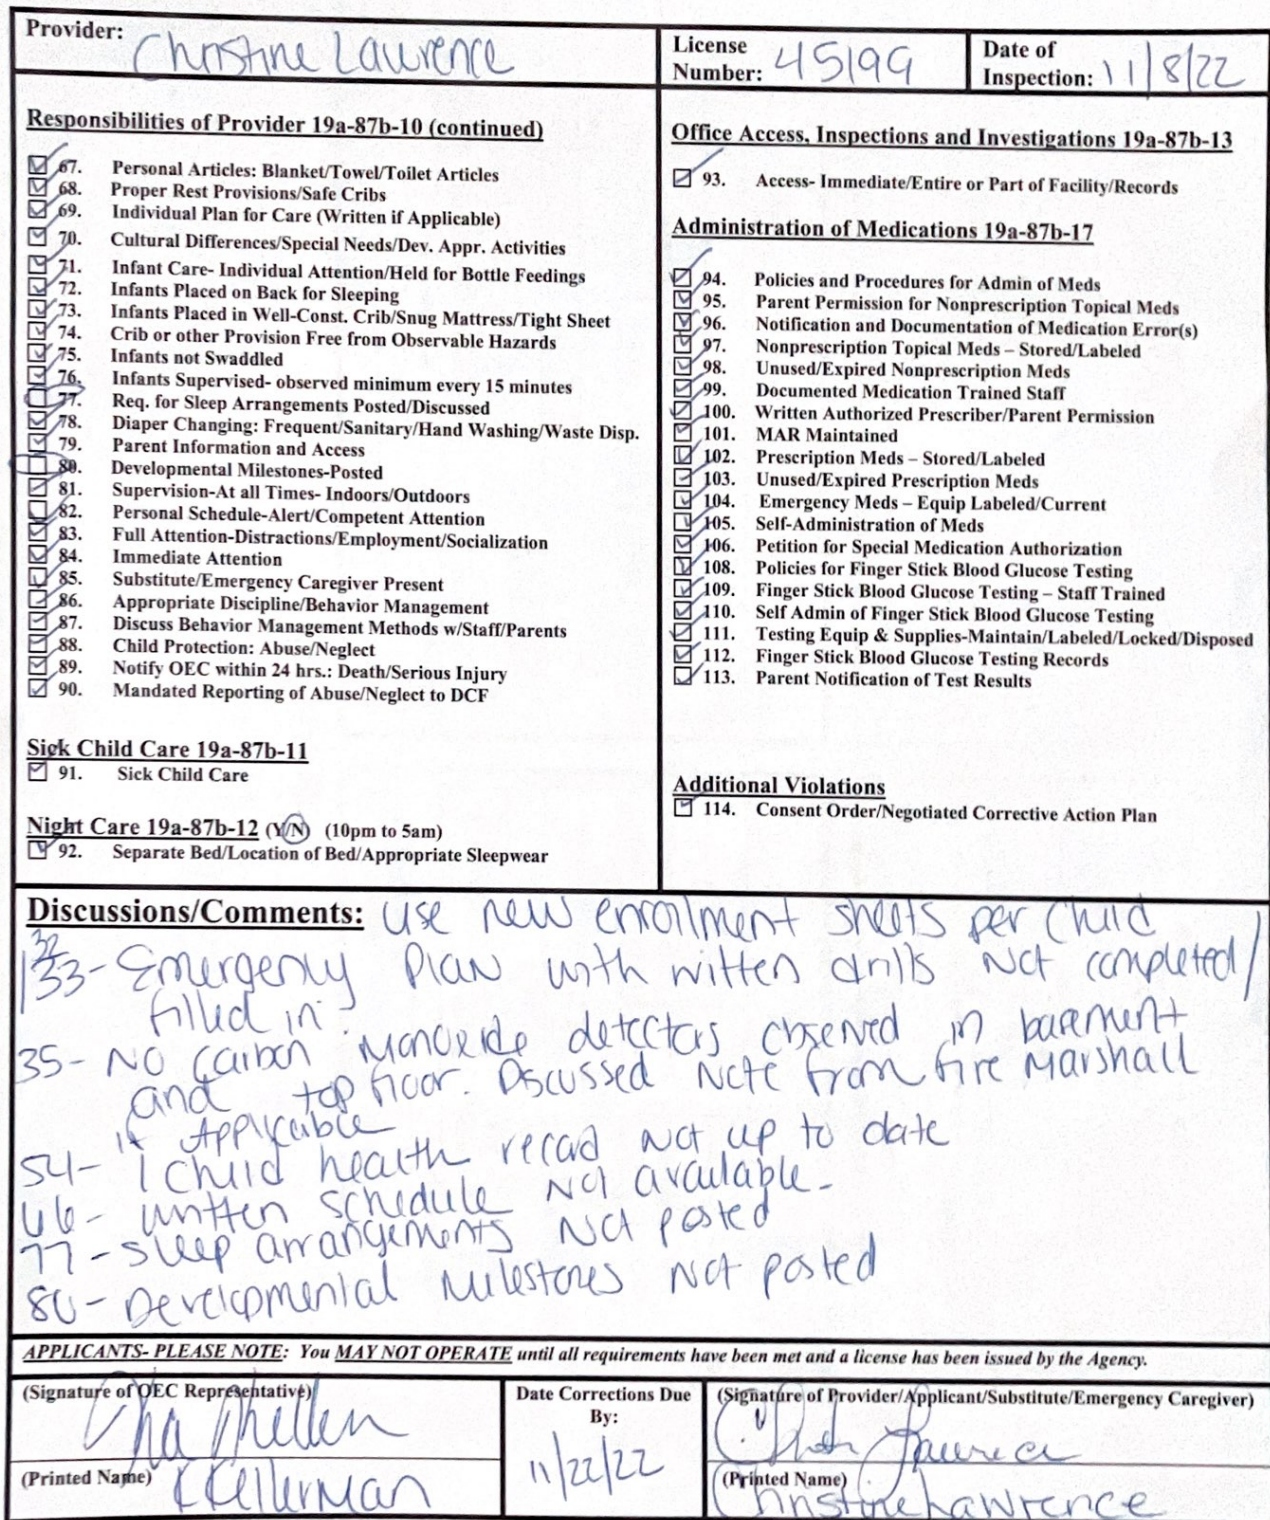 Provider: Christine Lawrence
License Number: 45199
Date of Inspection: 11/8/22
Responsibilities of Provider 19a-87b-10 (continued)
67. Personal Articles: Blanket/Towel/Toilet Articles
68. Proper Rest Provisions/Safe Cribs
69. Individual Plan for Care (Written if Applicable)
70. Cultural Differences/Special Needs/Dev. Appr. Activities
71. Infant Care- Individual Attention/Held for Bottle Feedings
72. Infants Placed on Back for Sleeping
73. Infants Placed in Well-Const. Crib/Snug Mattress/Tight Sheet
74. Crib or other Provision Free from Observable Hazards
75. Infants not Swaddled
76. Infants Supervised- observed minimum every 15 minutes
77. Req. for Sleep Arrangements Posted/Discussed
78. Diaper Changing: Frequent/Sanitary/Hand Washing/Waste Disp.
79. Parent Information and Access
80. Developmental Milestones-Posted
81. Supervision-At all Times- Indoors/Outdoors
82. Personal Schedule-Alert/Competent Attention
83. Full Attention-Distractions/Employment/Socialization
84. Immediate Attention
85. Substitute/Emergency Caregiver Present
86. Appropriate Discipline/Behavior Management
87. Discuss Behavior Management Methods w/Staff/Parents
88. Child Protection: Abuse/Neglect
89. Notify OEC within 24 hrs.: Death/Serious Injury
90. Mandated Reporting of Abuse/Neglect to DCF
Sick Child Care 19a-87b-11
91. Sick Child Care
Night Care 19a-87b-12 (Y/N) (10pm to 5am)
92. Separate Bed/Location of Bed/Appropriate Sleepwear
Office Access, Inspections and Investigations 19a-87b-13
93. Access- Immediate/Entire or Part of Facility/Records
Administration of Medications 19a-87b-17
94. Policies and Procedures for Admin of Meds
95. Parent Permission for Nonprescription Topical Meds
96. Notification and Documentation of Medication Error(s)
97. Nonprescription Topical Meds – Stored/Labeled
98. Unused/Expired Nonprescription Meds
99. Documented Medication Trained Staff
100. Written Authorized Prescriber/Parent Permission
101. MAR Maintained
102. Prescription Meds – Stored/Labeled
103. Unused/Expired Prescription Meds
104. Emergency Meds – Equip Labeled/Current
105. Self-Administration of Meds
106. Petition for Special Medication Authorization
108. Policies for Finger Stick Blood Glucose Testing
109. Finger Stick Blood Glucose Testing – Staff Trained
110. Self Admin of Finger Stick Blood Glucose Testing
111. Testing Equip & Supplies-Maintain/Labeled/Locked/Disposed
112. Finger Stick Blood Glucose Testing Records
113. Parent Notification of Test Results
Additional Violations
114. Consent Order/Negotiated Corrective Action Plan
Discussions/Comments: Use new enrollment sheets per child
32/33- Emergency Plan with written drills Not completed/
filled in.
35- No Carbon Monoxide detectors observed in basement
and top floor. Discussed Note from fire Marshall
if Applicable
54- 1 child health record not up to date
66- written schedule Not available-
77- sleep arrangements Not posted
80- Developmental Milestones Not posted
APPLICANTS- PLEASE NOTE: You MAY NOT OPERATE until all requirements have been met and a license has been issued by the Agency.
(Signature of OEC Representative)
(Printed Name) K Kellerman
Date Corrections Due By:
11/22/22
(Signature of Provider/Applicant/Substitute/Emergency Caregiver)
(Printed Name) Christine Lawrence